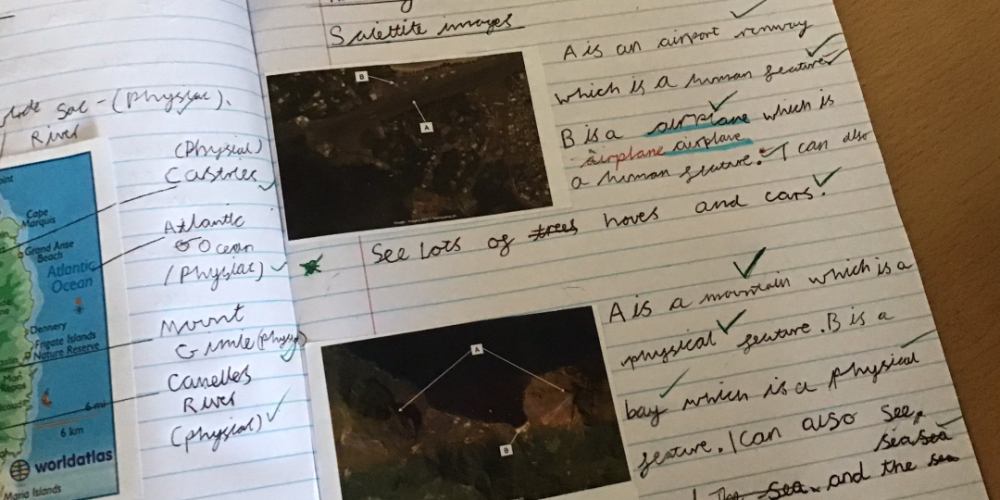 Sac - (Physiac).
River
(Physial)
Castries
Atlantic
Ocean
(Physiac)
Mount
Gimie (physi
Canelles
River
(physial)
Cape
Marquis
Grand Anse
Beach
Atlantic
Ocean
Dennery
Frigate Islands
Nature Reserve
6 mi
6 km
worldatlas
Maria Islands
Satellite images
B
A
A is an airport runway
which is a human feature
B is a airplane which is
airplane airplane
a human feature. I can also
See Lots of trees hoves and cars.
A
B
A is a mountain which is a
physical feature. B is a
bay which is a physical
feature. I can also see,
sea sea
sea and the sea